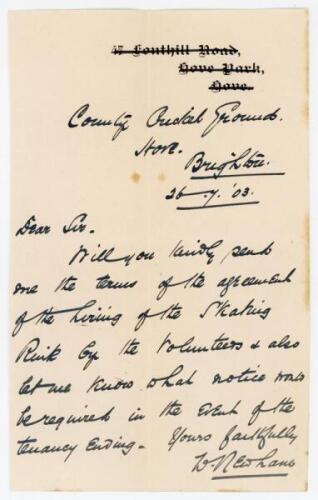 47 Fonthill Road,
Hove Park,
Hove.
County Cricket Ground.
Hove.
Brighton.
26-7-'03.
Dear Sir.
Will you kindly send
me the terms of the agreement
of the hiring of the Skating
Rink by the Volunteers & also
let me know what notice would
be required in the event of the
tenancy ending. Yours faithfully
W. Newham